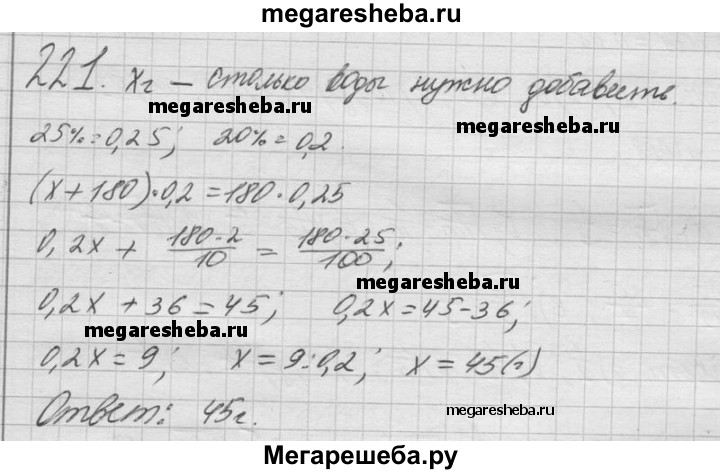 megaresheba.ru
221. xг – столько воды нужно добавить.
megaresheba.ru
megaresheba.ru
25%=0,25; 20%=0,2.
(x+180)·0,2=180·0,25
0,2x + 180·2/10 = 180·25/100;
megaresheba.ru
0,2x+36=45; 0,2x=45-36;
megaresheba.ru
0,2x=9; x=9:0,2; x=45(г)
Ответ: 45г.
megaresheba.ru
Мегарешеба.ру